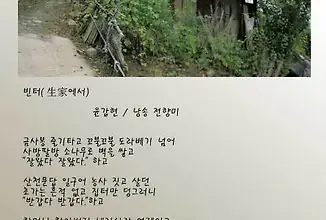 빈터( 生家에서)
윤갑현 / 낭송 전향미
굽사봉 줄기타고 꼬불꼬불 도라배기 넘어
사방팔방 소나무로 벽을 쌓고
"잘왔다 잘왔다." 하고
산천문답 일구어 농사 짓고 살던
초가는 흔적 없고 집터만 덩그러니
"반갑다 반갑다."하고